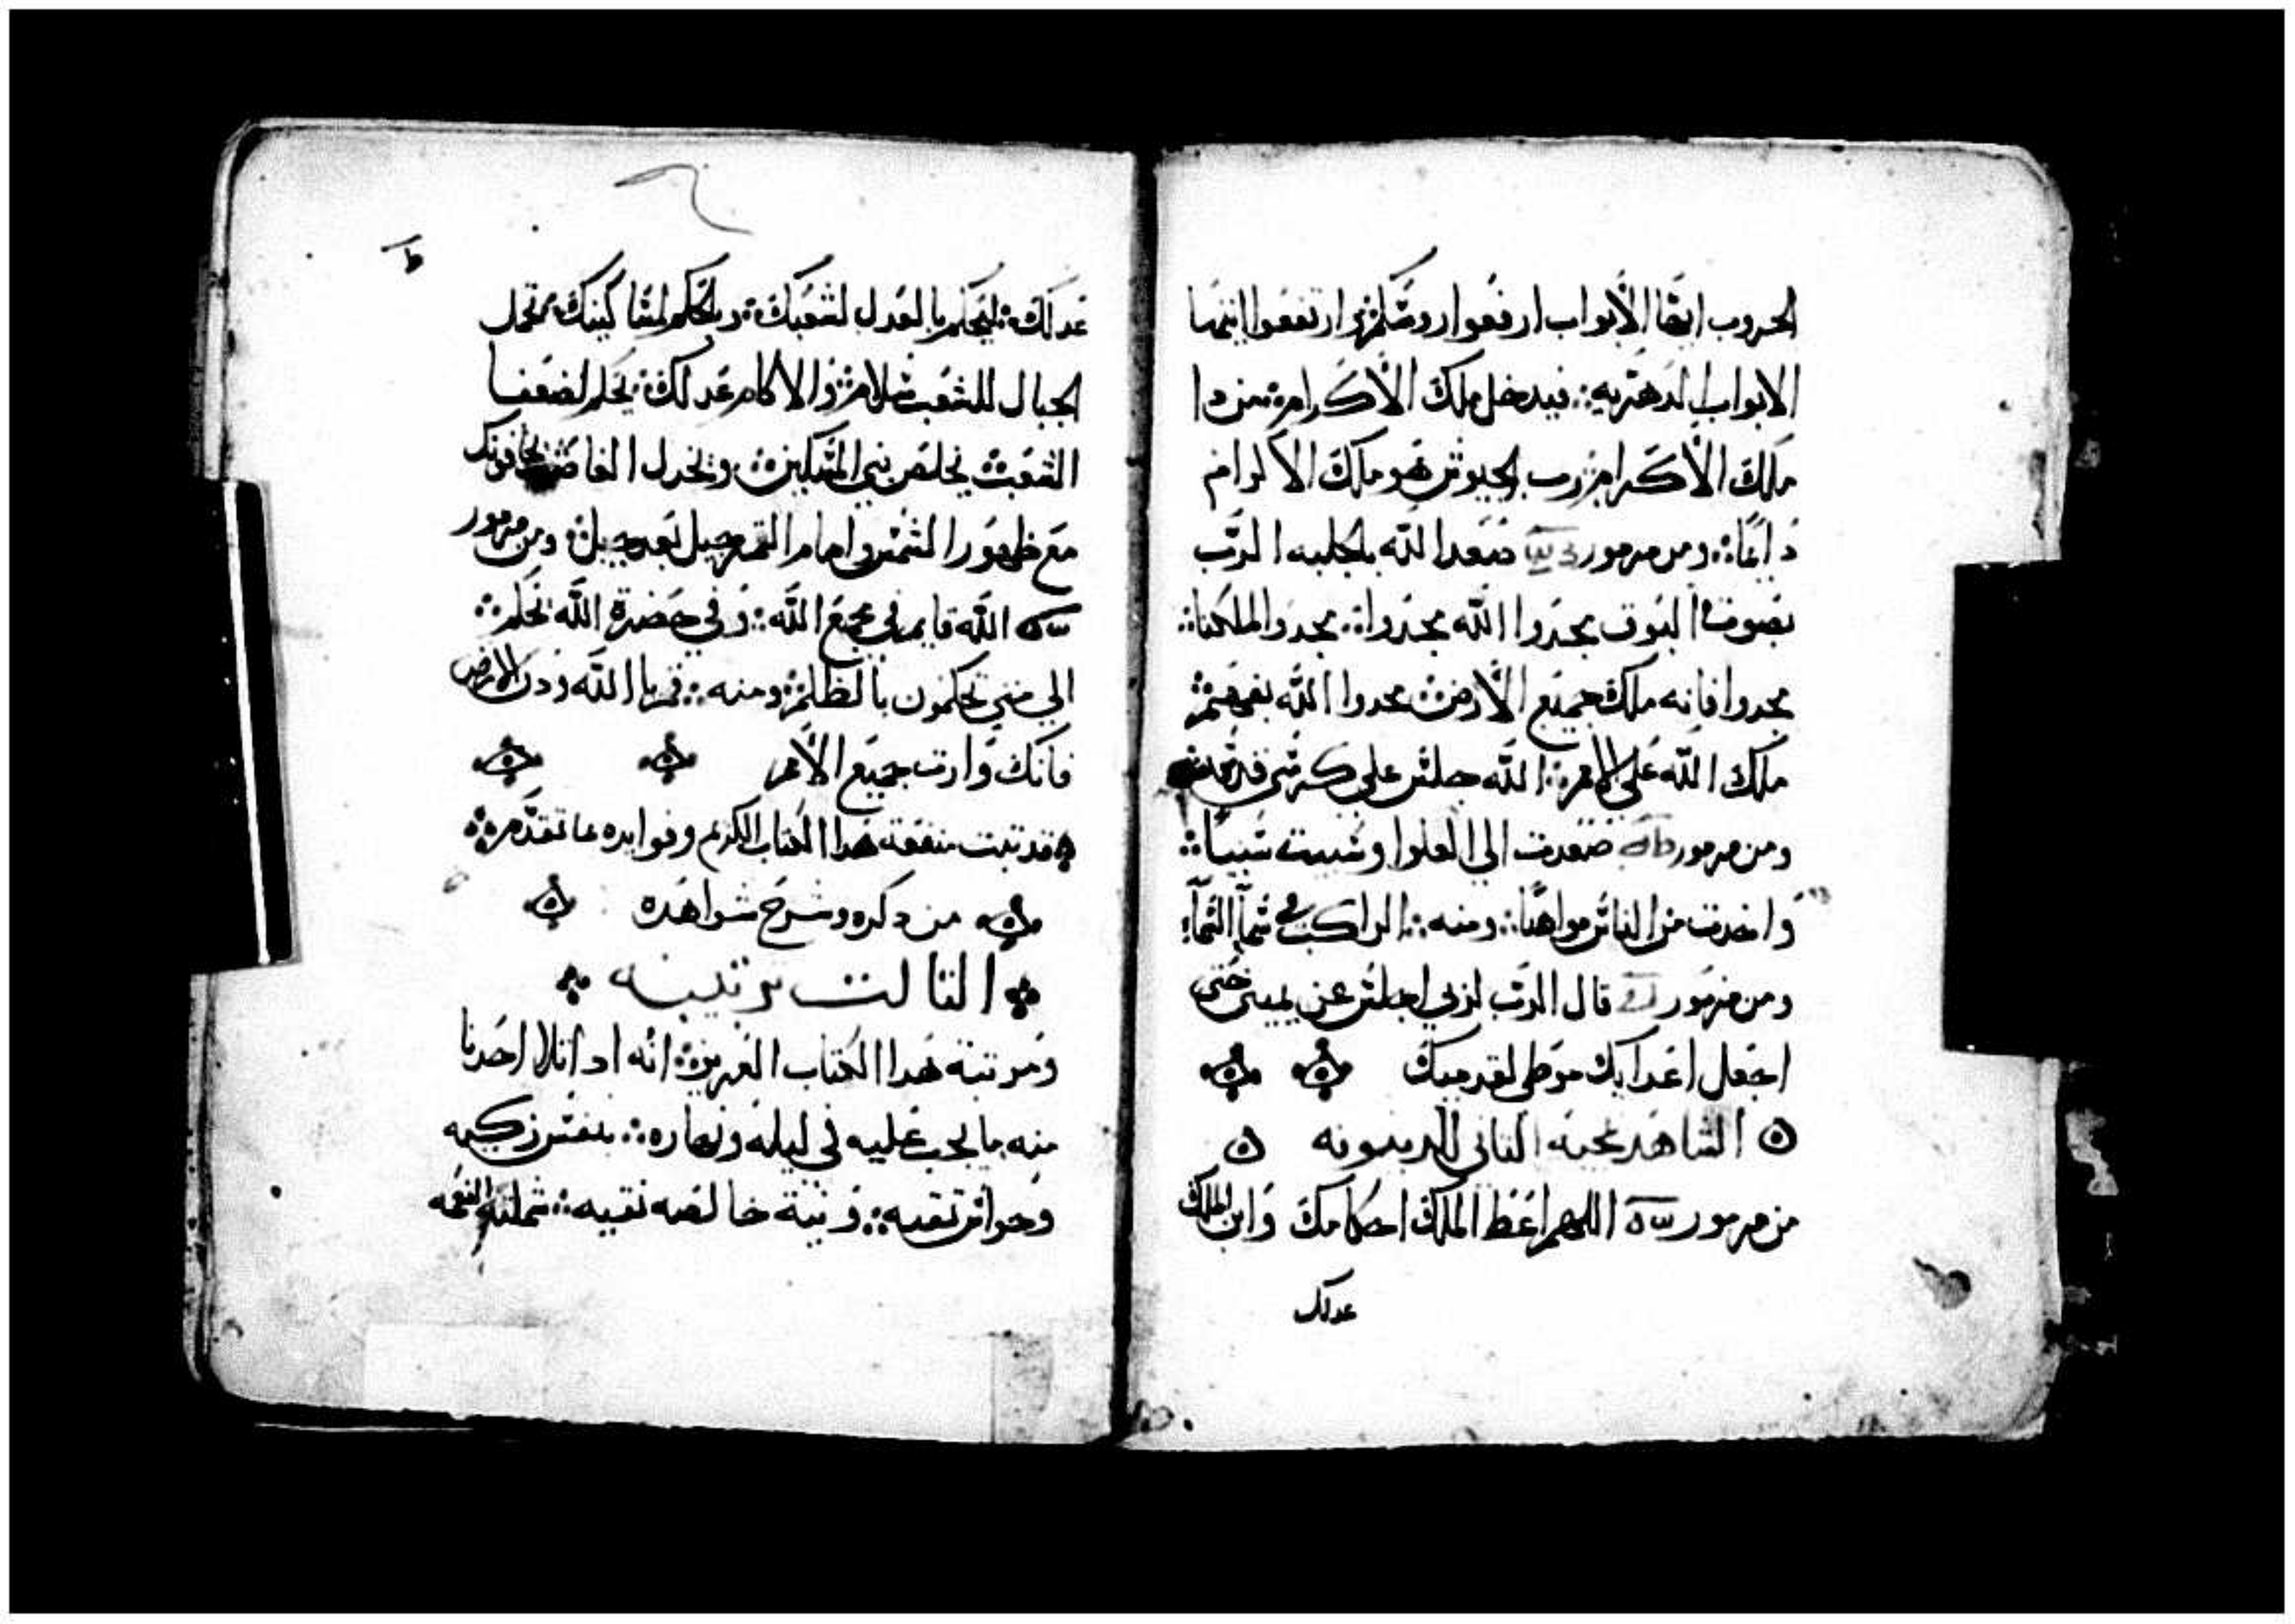 الحروب ايتها الابواب ارفعوا روسكم وارتفعوا ايتها
الابواب الدهريه فيدخل ملك الاكرام من دا
ملك الاكرام رب الجيوش هو ملك الاكرام
دايما ومن مزمور صعد الله بالجلبه الرب
بصوت البوق مجدوا الله مجدوا مجدوا لملكنا
مجدوا فانه ملك جميع الارض مجدوا الله بفهم
ملك الله علي الامم الله جلس علي كرسي قدسه
ومن مزمور صعدت الي العلوا وسبيت سبيا
واخدت من الناس مواهبا ومنه الراكب في سما السما
ومن مزمور قال الرب لربي اجلس عن يميني حتي
اجعل اعدايك موطي لقدميك
الشاهد مجيه التاني للدينونه
من مزمور اللهم اعط الملك احكامك وابن الملك
عدلك
عدلك ليحكم بالعدل لشعبك وبالحكم لمساكينك تحمل
الجبال للشعب سلام والاكام عدلك يحكم لضعفا
الشعب يخلص بني المساكين ويخدل الغاصب يخافونك
مع ظهور الشمس وامام القمر جيل بعد جيل ومن مزمور
الله قايم في مجمع الله وفي حضرة الله تحكم
الي متي تحكمون بالظلم ومنه قم يا الله ودن الارض
فانك وارت جميع الامم
قد تبت منفعة هدا الكتاب الكريم وفوايده بما تقدم
من دكره وشرح شواهده
التالت مرتبته
ومرتبة هدا الكتاب العزيز انه ادا تلا احدنا
منه ما يجب عليه في ليله ونهاره بنفس زكيه
وحواس نقيه ونية خالصه نقيه شملته النعمه